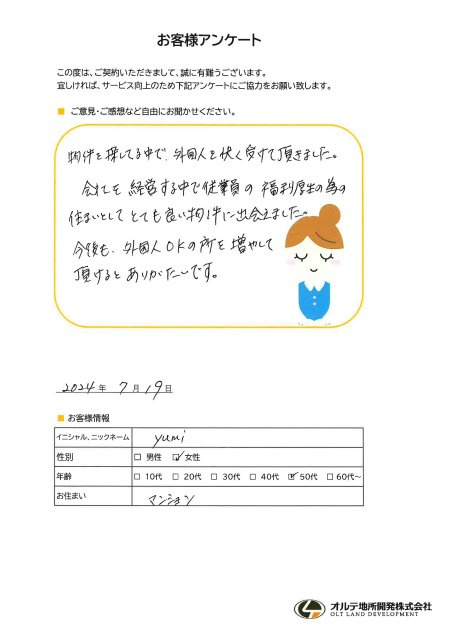 お客様アンケート
この度は、ご契約いただきまして、誠に有難うございます。
宜しければ、サービス向上のため下記アンケートにご協力をお願い致します。
■ ご意見・ご感想など自由にお聞かせください。
物件を探してる中で、外国人を快く受けて頂きました。
会社を経営する中で従業員の福利厚生の為の
住まいとしてとても良い物件に出会えました。
今後も、外国人OKの所を増やして
頂けるとありがたいです。
2024年7月19日
■ お客様情報
イニシャル、ニックネーム yumi
性別 □ 男性 ☑ 女性
年齢 □ 10代 □ 20代 □ 30代 □ 40代 ☑ 50代 □ 60代～
お住まい マンション
オルテ地所開発株式会社
OLT LAND DEVELOPMENT